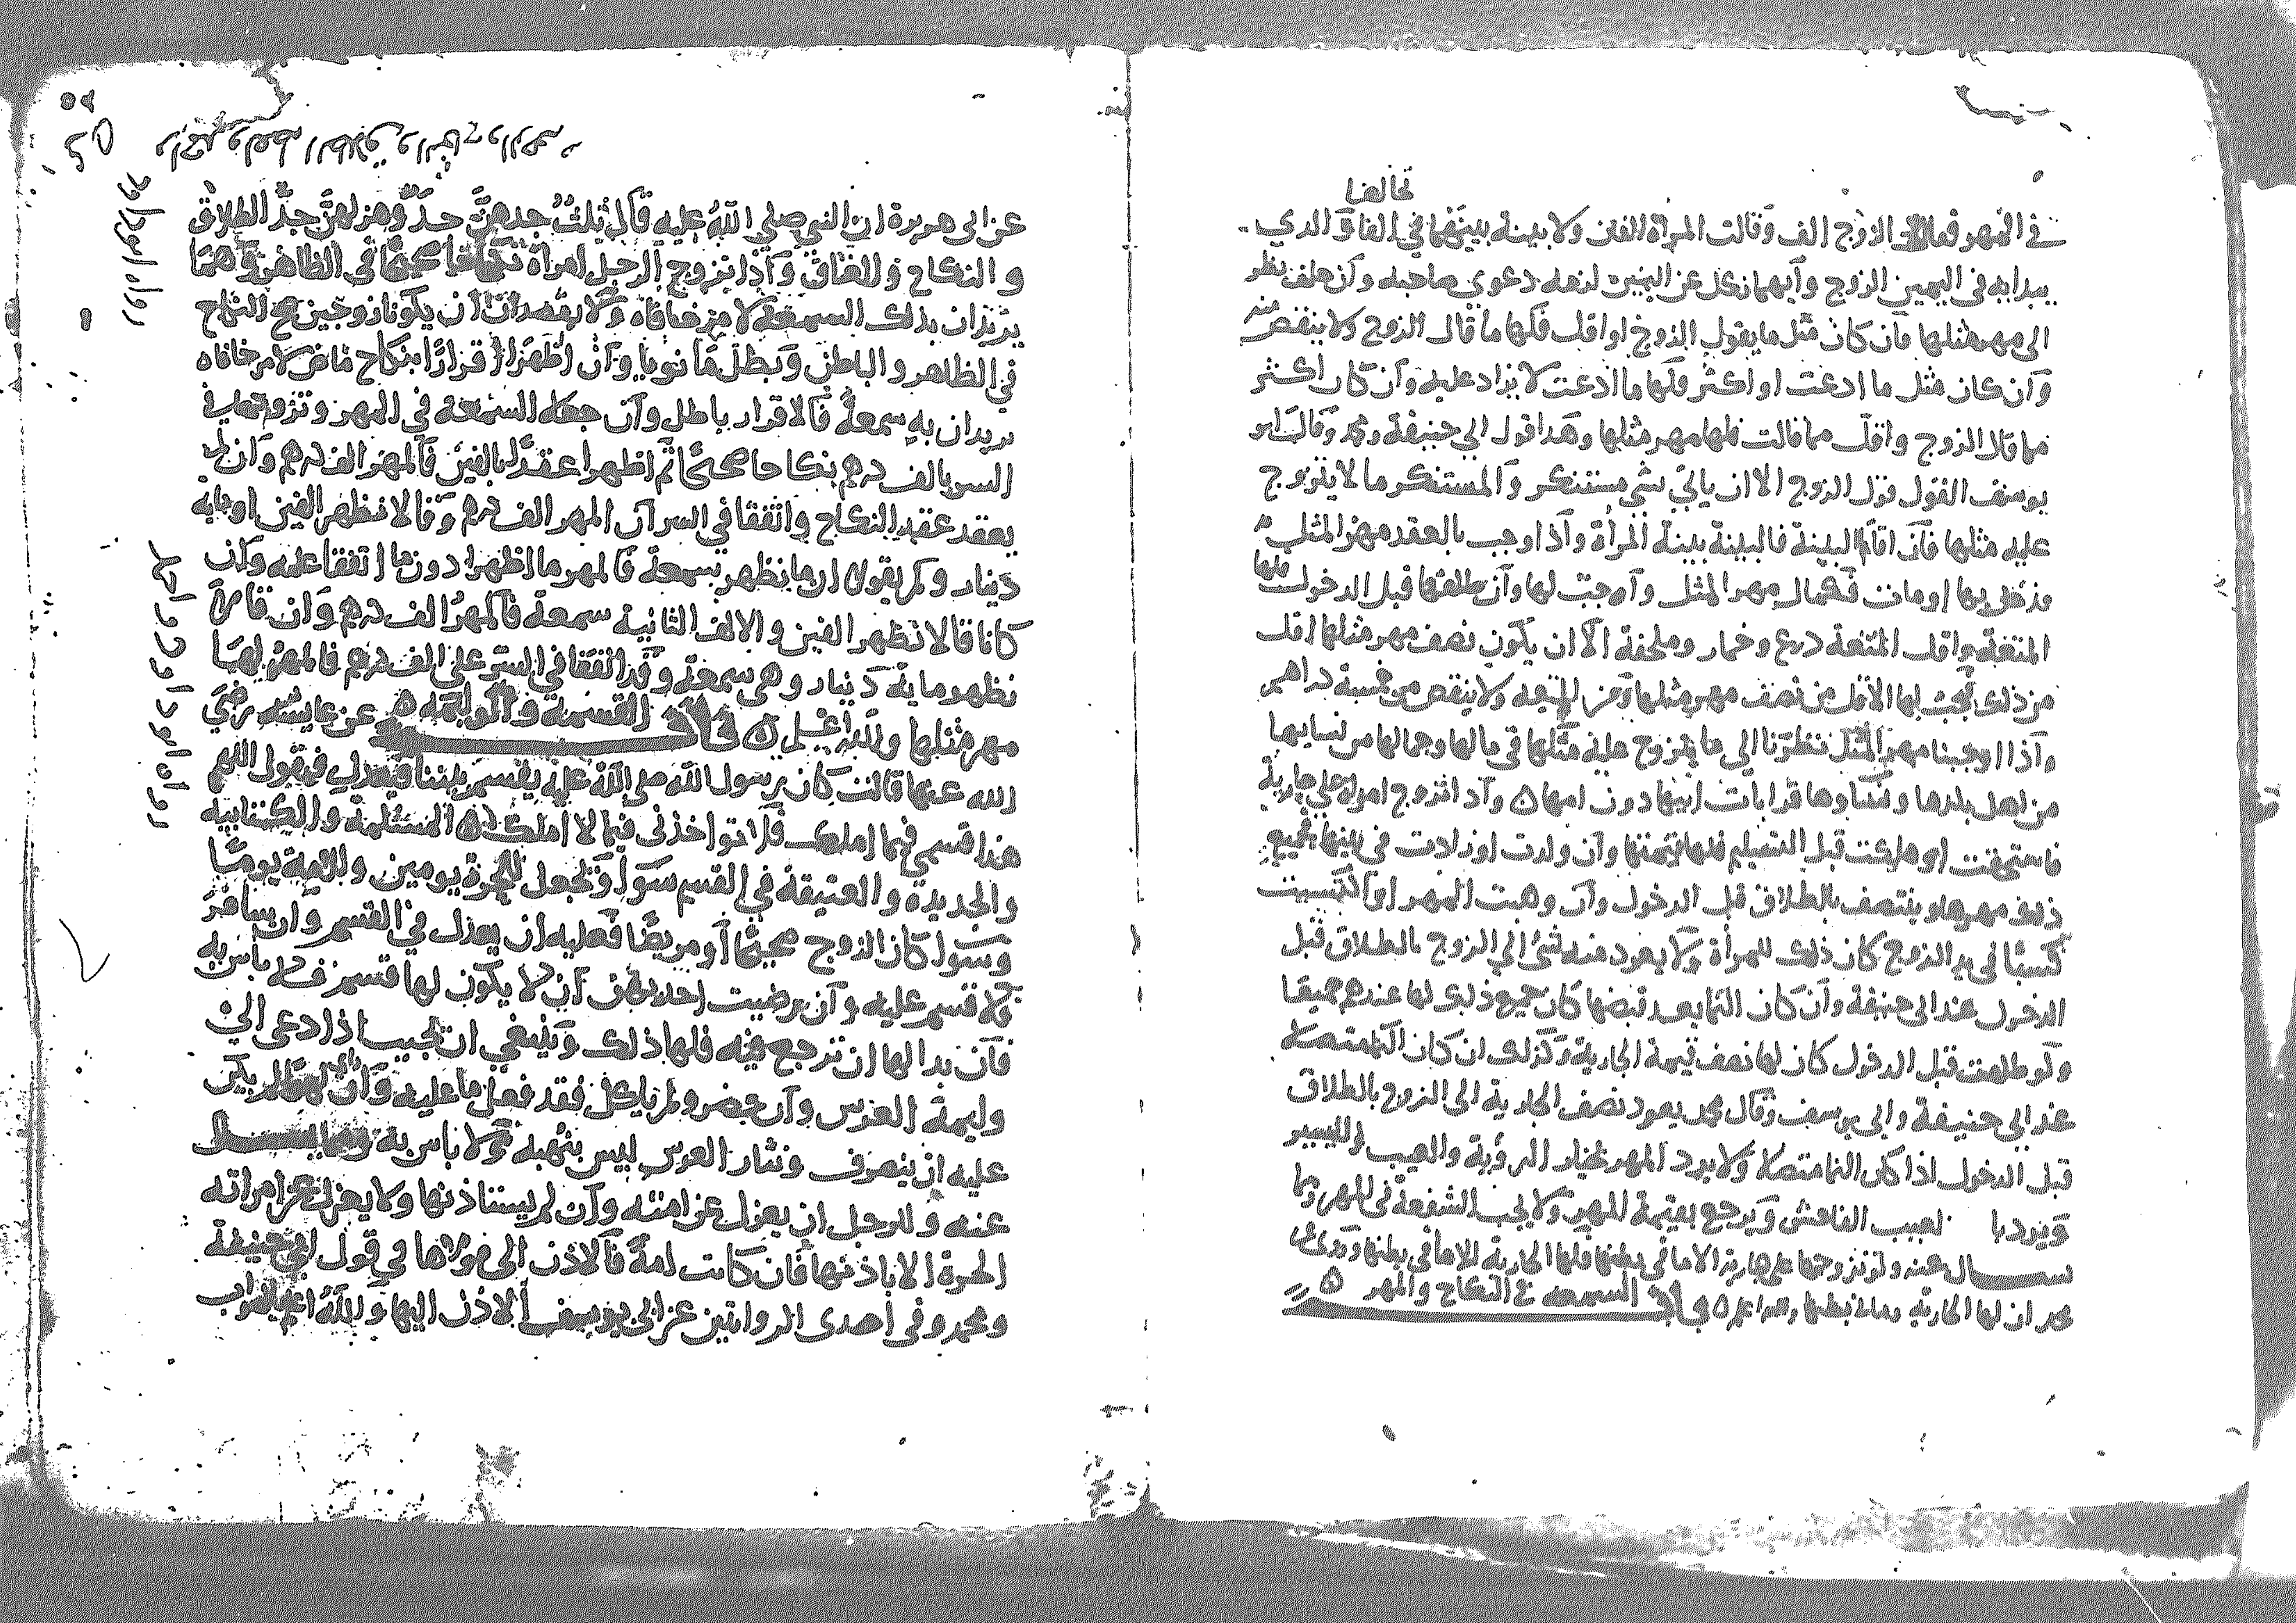 تحالفا
في المهر فقال الزوج الف وقالت المرأة الفين ولا بينة بينهما في الفاق الذي
يبدا به في اليمين الزوج وأيهما نكل عن اليمين لزمه دعوى صاحبه وان حلف نظر
الى مهر مثلها فان كان مثل ما يقول الزوج او اقل فلها ما قال الزوج ولا ينقص منه
وان كان مثل ما ادعت او اكثر فلها ما ادعت لا يزاد عليه وان كان اكثر
مما قال الزوج واقل مما قالت فلها مهر مثلها وهذا قول ابي حنيفة ومحمد وقال ابو
يوسف القول قول الزوج الا ان ياتي بشي مستنكر والمستنكر ما لا يتزوج
عليه مثلها فان اقاما البينة فالبينة بينة المرأة واذا وجب بالعقد مهر المثل
فدخل بها او مات فكمال مهر المثل واجب لها وان طلقها قبل الدخول فلها
المتعة واقل المتعة درع وخمار وملحفة الا ان يكون نصف مهر مثلها اقل
من ذلك فيجب لها الاقل من نصف مهر مثلها ومن المتعه ولا ينقص من خمسة دراهم
واذا اوجبنا مهر المثل نظرنا الى ما يتزوج عليه مثلها في مالها وجمالها من نسايها
من اهل بلدها ونساوها قرابات ابيها دون امها ن واذا تزوج امراة على جارية
فاستحقت او هلكت قبل التسليم فلها قيمتها وان ولدت اولادا في يدها فجميع
ذلك مهرها وينتصف بالطلاق قبل الدخول وان وهبت المهر او اكتسبت
كسبا في يد الزوج كان ذلك للمرأة ولا يعود منه شئ الى الزوج بالطلاق قبل
الدخول عند ابي حنيفة وان كان النما بعد قبضها كان جميع ذلك لها عندهم جميعا
ولو طلقت قبل الدخول كان لها نصف قيمة الجارية وكذلك ان كان النما متصلا
عند ابي حنيفة وابي يوسف وقال محمد يعود نصف الجارية الى الزوج بالطلاق
قبل الدخول اذا كان النما متصلا ولا يرد المهر بخيار الرؤية والعيب اليسير
ويرد بالعيب الفاحش ويرجع بقيمة المهر ولا يجب الشفعة في المهر وما
سال عنه ولو تزوجها على جارية الا ما في بطنها فلها الجارية الا ما في بطنها وروى عن
محمد ان لها الجارية وما في بطنها والله اعلم ن باب السمعه في النكاح والمهر ن
عن ابي هريرة ان النبي صلي الله عليه قال ثلث جدهن جد وهزلهن جد الطلاق
والنكاح والعتاق واذا تزوج الرجل امرأة نكاحا صحيحا في الظاهر وهما
يريدان بذلك السمعة لامر خافاه ولا يقصدان ان يكونا زوجين صح النكاح
في الظاهر والباطن وبطل ما نويا وان اظهرا اقرارا بنكاح ماض لامر خافاه
يريدان به سمعة فالاقرار باطل وان جعلا السمعة في المهر وتزوجها في
السر بالف درهم نكاحا صحيحا ثم اظهرا عقدا بالفين فالمهر الف درهم وان لم
يعقد عقد النكاح واتفقا في السر ان المهر الف درهم وقالا نظهر الفين او ماية
دينار ولم يقولا ان ما نظهر سمعة فالمهر ما اظهرا دون ما اتفقا عليه وان
كانا قالا نظهر الفين والالف الثانية سمعة فالمهر الف درهم وان قالا
نظهر ماية دينار وهي سمعة وقد اتفقا في السر على الف درهم فالمهر لها
مهر مثلها والله اعلم ن باب القسمة والوليمة ن عن عايشه رضي
الله عنها قالت كان رسول الله صلى الله عليه يقسم بيننا فيعدل فيقول اللهم
هذا قسمي فيما املك فلا تواخذني فيما لا املك ن المسلمة والكتابية
والجديدة والعتيقة في القسم سوا وتجعل للحرة يومين وللامة يوما
وسوا كان الزوج صحيحا او مريضا فعليه ان يعدل في القسم وان سافر
فلا قسم عليه وان رضيت احديهن ان لا يكون لها قسم فلا باس به
فان بدا لها ان ترجع فيه فلها ذلك وينبغي ان تجيب اذا دعى الى
وليمة العرس وان حضر ولم ياكل فقد فعل ما عليه وان راى لهوا لم يكن
عليه ان ينصرف ونثار العرس ليس بنهبه ولا باس به ومما يسال
عنه وللرجل ان يعزل عن امته وان لم يستاذنها ولا يعزل عن امراته
الحرة الا باذنها فان كانت امة فالاذن الى مولاها في قول ابي حنيفة
ومحمد وفي احدى الروايتين عن ابي يوسف الاذن اليها والله اعلم بالصواب
رواه ابو داود
رواه ابو داود واحمد